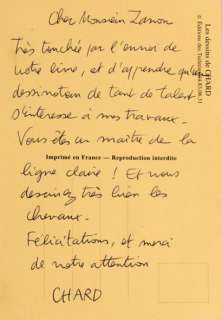 Cher Monsieur
Très touchée par l'envoi de
votre livre, et d'apprendre qu'un
dessinateur de tant de talent
s'intéresse à mes travaux.
Vous êtes un maître de la
ligne claire ! Et vous
dessinez très bien les
chevaux.
Félicitations, et merci
de votre attention
CHARD
Imprimé en France — Reproduction interdite
Les dessins de CHARD
© Editions des